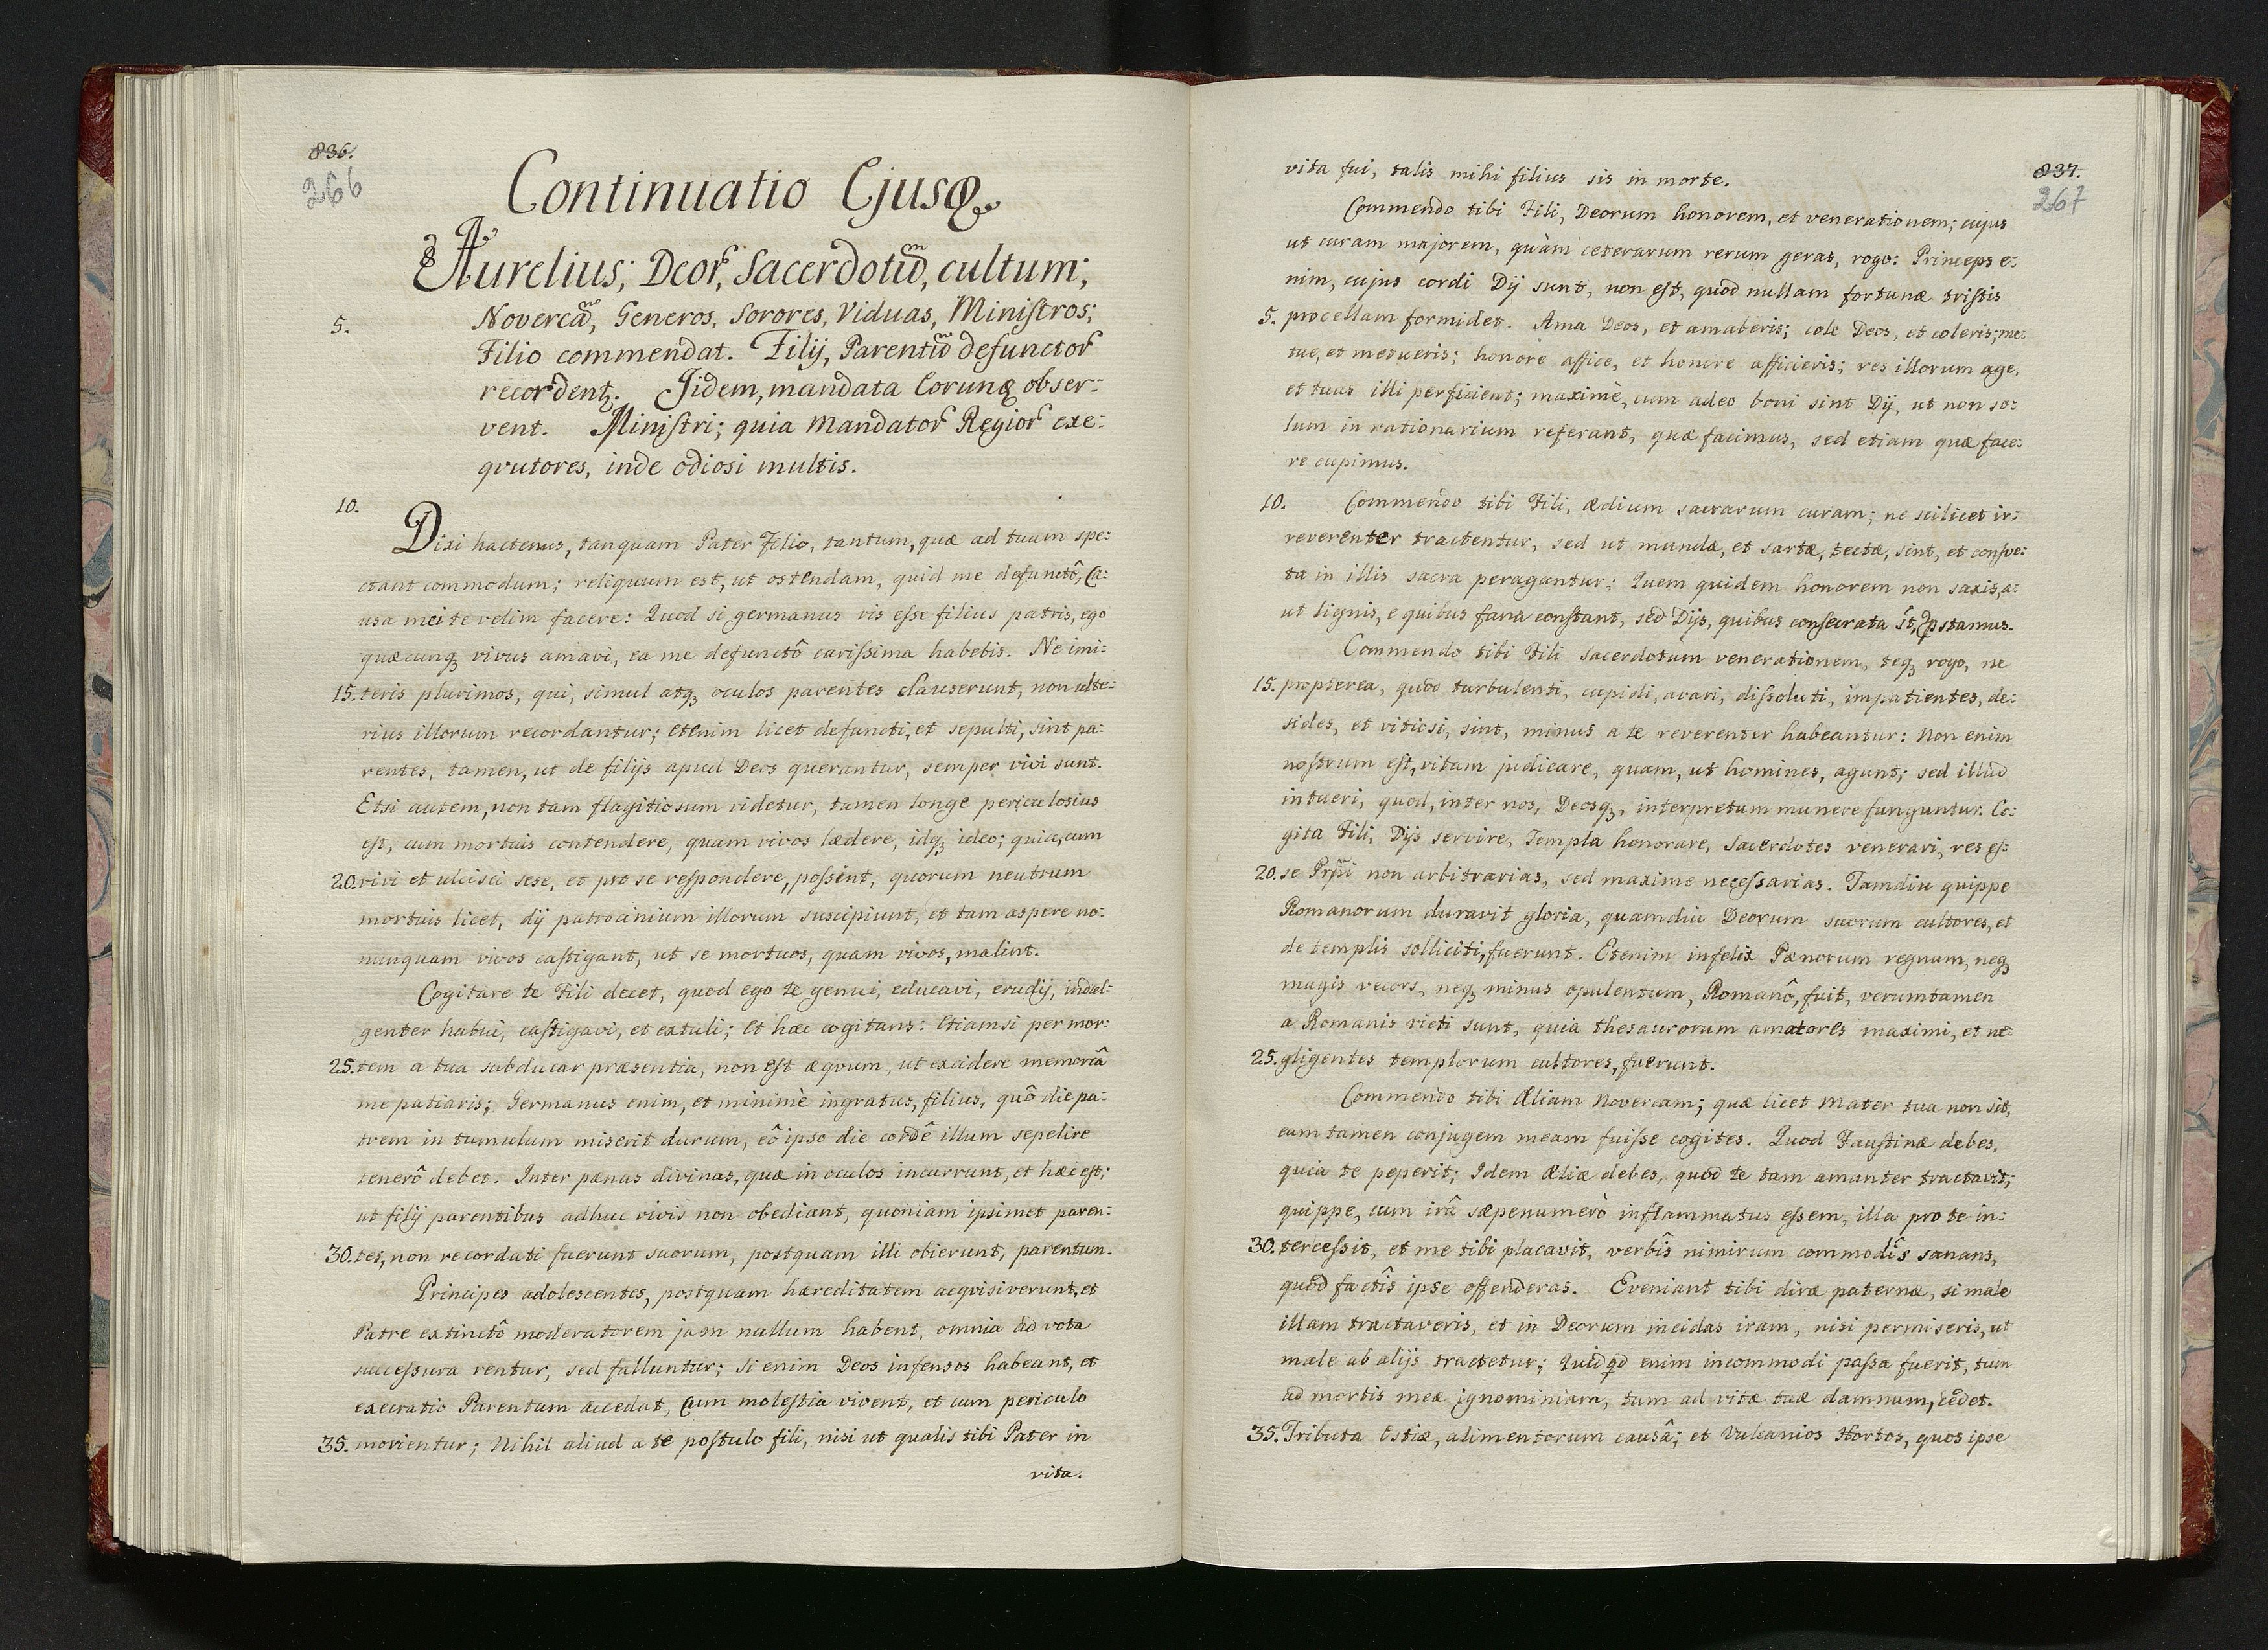 836.
266
Continuatio Ejusq
Aurelius; Deor, Sacerdotũ, cultum;
Novercã, Generos, Sorores, Viduas, Ministros;
5.
Filio commendat. Filij, Parentiũ defunctor
recordent. Iidem, mandata Eorunq obser:
vent. Ministri; quia Mandator Regior exe:
qvutores, inde odiosi multis.
10.
Dixi hactenus, tanquam Pater Filio, tantum, quæ ad tuum spe:
ctant commodum; reliquum est, ut ostendam, quid me defunctô, Ca:
usa mei te velim facere: Quod si germanus vis esse filius patris, ego
quæcunq vivus amavi, ea me defunctô carissima habebis. Ne imi:
15. teris plurimos, qui, simul atq oculos parentes clauserunt, non ulte:
rius illorum recordantur; etenim licet defuncti, et sepulti, sint pa:
rentes, tamen, ut de filijs apud Deos querantur, semper vivi sunt.
Etsi autem, non tam flagitiosum videtur, tamen longe periculosius
est, cum mortuis contendere, quam vivos lædere, idq ideo; quia, cum
20. vivi et ulcisci sese, et pro se respondere, possint, quorum neutrum
mortuis licet, dij patrocinium illorum suscipiunt, et tam aspere no:
nunquam vivos castigant, ut se mortuos, quam vivos, malint.
Cogitare te Fili decet, quod ego te genui, educavi, erudij, indul:
genter habui, castigavi, et extuli; Et hæc cogitans: Etiamsi per mor:
25. tem a tua subducar præsentia, non est æqvum, ut excidere memoriâ
me patiaris; Germanus enim, et minimè ingratus, filius, quô die pa:
trem in tumulum miserit durum, eô ipso die cordê illum sepelire
tenerô debet. Inter pænas divinas, quæ in oculos incurrunt, et hæc est;
ut filij parentibus adhuc vivis non obediant, quoniam ipsimet paren:
30. tes, non recordati fuerunt suorum, postquam illi obierunt, parentum.
Principes adolescentes, postquam hæreditatem acqvisiverunt, et
Patre extinctô moderatorem jam nullum habent, omnia ad vota
successura rentur, sed falluntur; Si enim Deos infensos habeant, et
execratio Parentum accedat, Cum molestia vivent, et cum periculo
35. morientur; Nihil aliud a te postulo fili, nisi ut qualis tibi Pater in
vita.
837.
267
vita fui, talis mihi filius sis in morte.
Commendo tibi Fili, Deorum honorem, et venerationem; cujus
ut curam majorem, quàm ceterarum rerum geras, rogo: Princeps e:
nim, cujus cordi Dij sunt, non est, quod nullam fortunæ tristis
5. procellam formidet. Ama Deos, et amaberis; cole Deos, et coleris; me:
tue, et metueris; honore affice, et honore afficieris; res illorum age,
et tuas illi perficient; maximè, cum adeo boni sint Dij, ut non so:
lum in rationarium referant, quæ facimus, sed etiam quæ face:
re cupimus.
10. Commendo tibi Fili, ædium sacrarum curam; ne scilicet ir:
reverenter tractentur, sed ut mundæ, et sartæ, tectæ, sint, et consve:
ta in illis sacra peragantur; Quem quidem honorem non saxis, a:
ut lignis, e quibus fana constant, sed Dijs, quibus consecrata st, pstamus.
Commendo tibi Fili Sacerdotum venerationem, teq rogo, ne
15. propterea, quod turbulenti, cupidi, avari, dissoluti, impatientes, de:
sides, et vitiosi, sint, minus a te reverenter habeantur: Non enim
nostrum est, vitam judicare, quam, ut homines, agunt; sed illud
intueri, quod, inter nos, Deosq, interpretum munere funguntur. Co:
gita Fili, Dijs servire, Templa honorare, Sacerdotes venerari, res es:
20. se non arbitrarias, sed maxime necessarias. Tamdiu quippe
Romanorum duravit gloria, quamdiu Deorum suorum cultores, et
de templis solliciti, fuerunt. Etenim infelix Pænorum regnum, neq
magis vecors, neq minus opulentum, Romanô, fuit, verumtamen
a Romanis victi sunt, quia thesaurorum amatores maximi, et ne:
25. gligentes templorum cultores, fuerunt.
Commendo tibi Æliam Novercam; quæ licet Mater tua non sit,
eam tamen conjugem meam fuisse cogites. Quod Faustinæ debes,
quia te peperit; Idem Æliæ debes, quod te tam amanter tractavit;
quippe, cum irâ sæpenumerò inflammatus essem, illa pro te in:
30. tercessit, et me tibi placavit, verbîs nimirum commodîs sanans,
quôd factîs ipse offenderas. Eveniant tibi diræ paternæ, si male
illam tractaveris, et in Deorum incidas iram, nisi permiseris, ut
male ab alijs tractetur; Quidqd enim incommodi passa fuerit, tum
ad mortis meæ ignominiam, tum ad vitæ tuæ damnum, cedet.
35. Tributa Ostiæ, alimentorum causâ; et Vulcanios Hortos, quos ipse